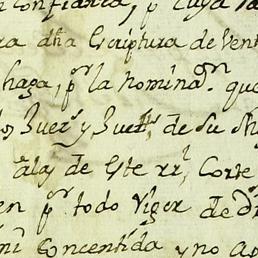 Confianza, pr Cuya
dha Escriptura de Vent
haga, pr la nominaon. que
Juezs y Justs, de Su
de Este rl, Corte
en pr todo Vigor de
Concentida y no